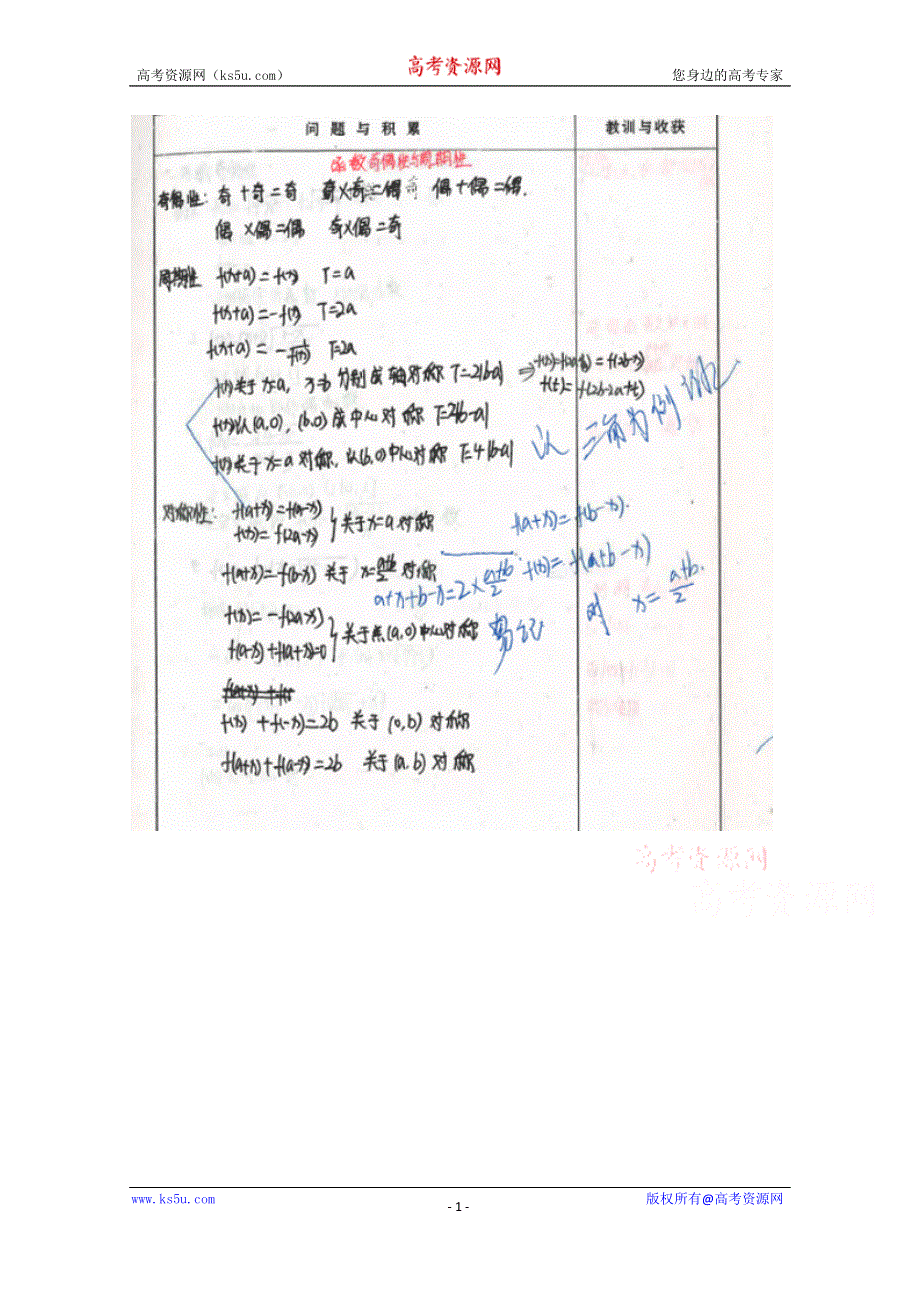 高考资源网（ks5u.com）
高考资源网
您身边的高考专家
问题与积累
教训与收获
函数奇偶性与周期性
奇偶性：奇+奇=奇 奇×奇=偶 偶+偶=偶.
偶×偶=偶 奇×偶=奇
周期性 f(x+a)=f(x) T=a
f(x+a)=-f(x) T=2a
f(x+a)=-1/f(x) T=2a
f(x)关于x=a，x=b分别成轴对称 T=2|b-a| ⇒ f(x)=f(2a-x)=f(2b-x)
f(t)=f(2b-2a+t)
f(x)以(a,0)，(b,0)成中心对称 T=2|b-a|
f(x)关于x=a对称，以(b,0)中心对称 T=4|b-a|
以三角为例
对称性：f(a+x)=f(a-x)
f(x)=f(2a-x) } 关于x=a对称
f(a+x)=f(b-x).
f(a+x)=f(b-x) 关于 x=(a+b)/2 对称
a+x+b-x=2×(a+b)/2
f(x)=f(a+b-x)
则 x=(a+b)/2.
f(x)=-f(2a-x)
f(a-x)+f(a+x)=0 } 关于点(a,0)中心对称
易记
f(x)+f(-x)=2b 关于(0,b)对称
f(a+x)+f(a-x)=2b 关于(a,b)对称
高考资源网
高考资源网
www.ks5u.com
- 1 -
版权所有@高考资源网